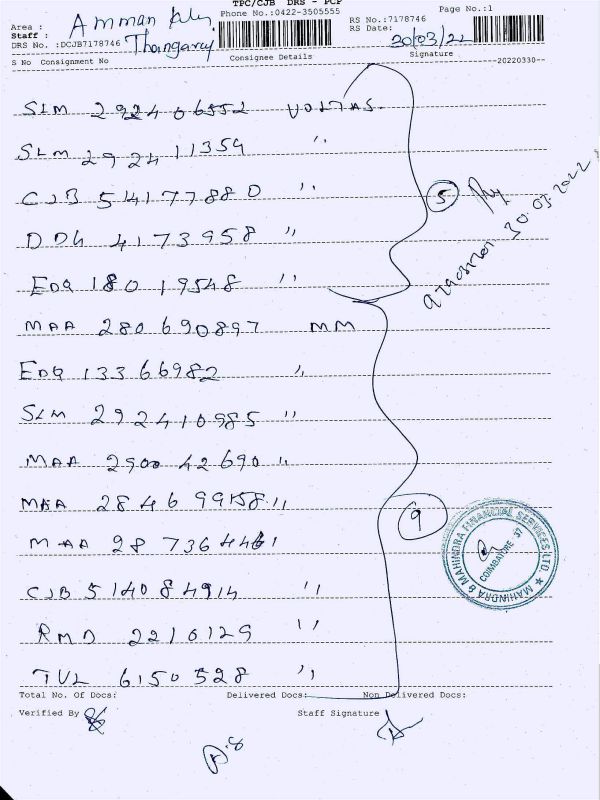 TPC/CJB DRS - PCP
Phone No.:0422-3505555
Page No.:1
Area : Amman
RS No.:7178746
Staff : Thangaraj
RS Date: 30/03/22
DRS No. :DCJB7178746
S No Consignment No
Consignee Details
Signature
--20220330--
SLM 292406552 VOLTAS
SLM 292411359 "
CJB 54177880 "
DDG 4173958 "
EDQ 18019548 "
5
30.03.2022
MAA 280690897 MM
EDQ 13366982 "
SLM 292410985 "
MAA 290042690 "
MAA 284699158 "
9
MAHINDRA & MAHINDRA FINANCIAL SERVICES LTD.
COIMBATORE 37
MAA 28736446
CJB 514084914 "
RMD 2210129 "
TVL 6150528 "
Total No. Of Docs:
Delivered Docs:
Non Delivered Docs:
Verified By
Staff Signature